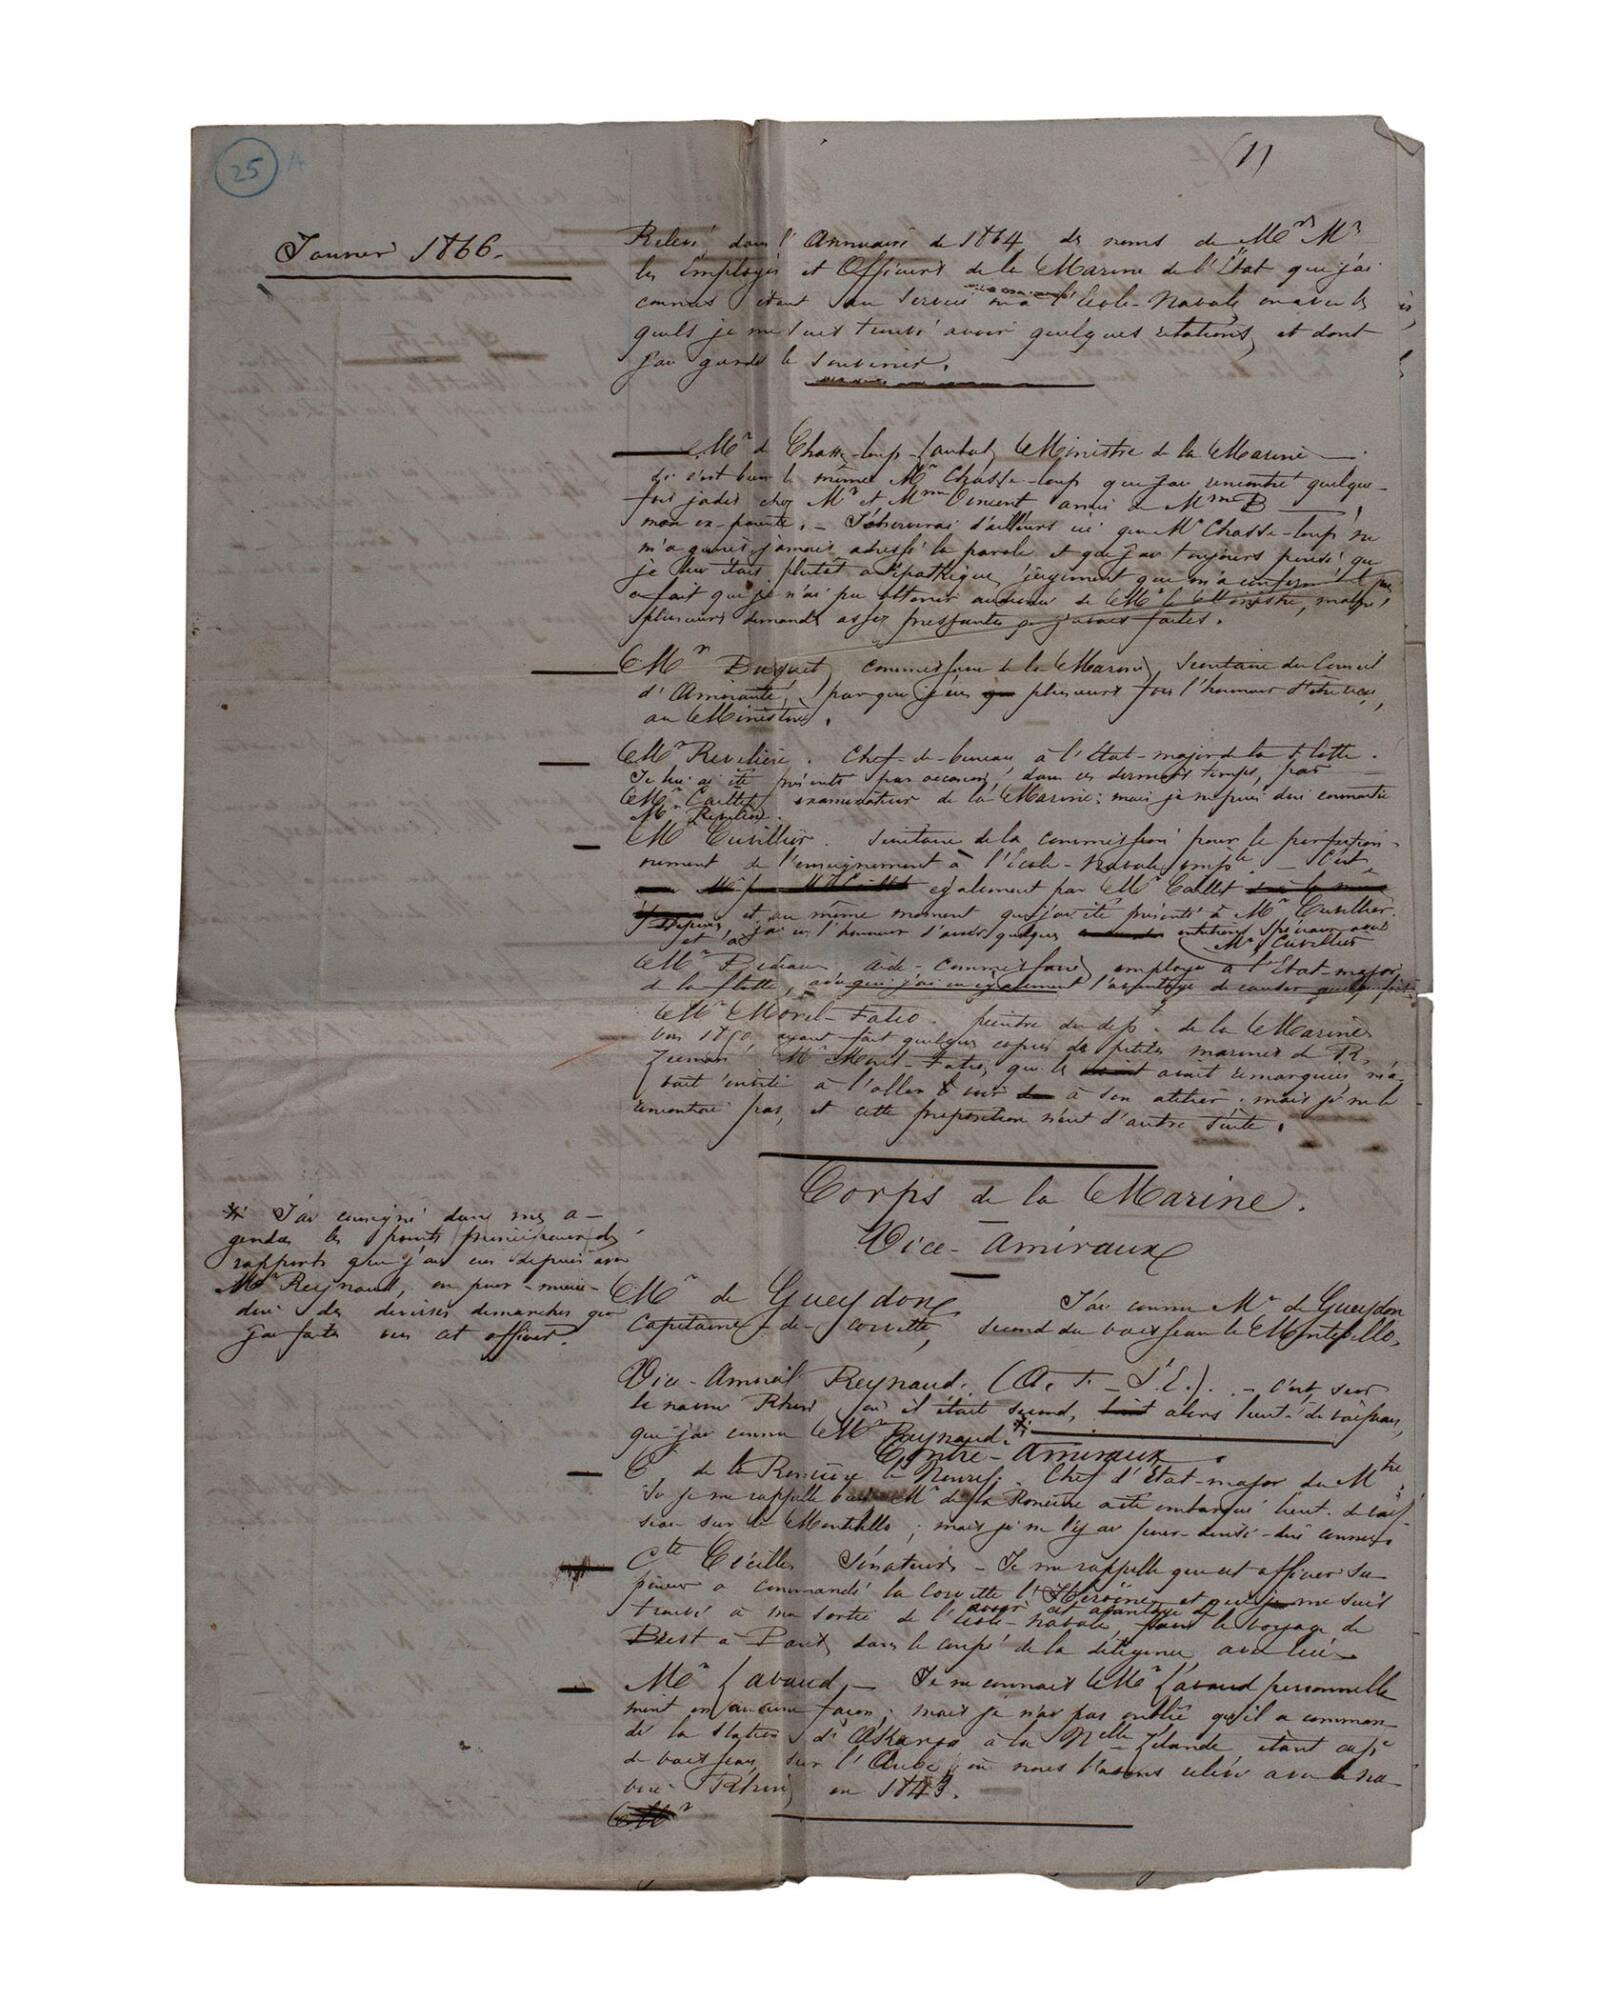 25
(1)
Janvier 1866.
Relevé dans l'Annuaire de 1864 des noms de Mrs Mrs
les Employés et Officiers de la Marine de l'État que j'ai
connus étant au service à l'École-Navale, ou avec les
quels je me suis trouvé avoir quelques relations, et dont
j'ai gardé le souvenir.
Mr de Chasse-loup-Laubat, Ministre de la Marine
Si c'est bien le même Mr Chasse-loup que j'ai rencontré quelque-
fois jadis chez Mr et Mme Vincent amis de Mme B
mon J'observerai d'ailleurs ici que Mr Chasse-loup ne
m'a guères jamais adressé la parole et que j'ai toujours pensé que
je lui étais plutôt antipathique, jugement que m'a confirmé
le fait que je n'ai pu obtenir audience de Mr le Ministre, malgré
plusieurs demandes assez pressantes que j'avais faites.
Mr commissaire de la Marine, Secrétaire du Conseil
d'Amirauté, par qui j'eus plusieurs fois l'honneur d'être reçu,
au Ministère.
Mr Revelière. Chef-de-bureau à l'État-major de la flotte.
Je lui ai été présenté par occasion, dans ces derniers temps, par
Mr Caillet, examinateur de la Marine; mais je ne puis dire connaître
Mr Revelière.
Mr Cuvillier. Secrétaire de la commission pour le perfection-
nement de l'enseignement à l'École-Navale imple. — C'est
également par Mr Caillet
et au même moment que j'ai été présenté à Mr Cuvillier.
et depuis, j'ai eu l'honneur d'avoir quelques entretiens spéciaux avec
Mr Cuvillier
Mr aide-commissaire, employé à l'État-major
de la flotte, avec qui j'ai eu également l'avantage de causer quelquefois
Mr Morel-Fatio. peintre du dépt. de la Marine
vers ayant fait quelques copies de petites marines de R.
Zeeman, Mr Morel-Fatio, qui les avait remarquées, m'a-
vait invité à l'aller voir à son atelier; mais je ne le
rencontrai pas, et cette proposition n'eut d'autre suite.
Corps de la Marine.
Vice-Amiraux
* J'ai consigné dans mes a-
gendas les points principaux des
rapports que j'ai eus depuis avec
Mr Reynaud, ou pour-mieux-
dire des diverses démarches que
j'ai faites vers cet officier.
Mr de Gueydon J'ai connu Mr de Gueydon
Capitaine-de-corvette, second du vaisseau le Montebello,
Vice-Amiral Reynaud. (A. F. - S. E.). - C'est sur
le navire Rhin où il était second, alors lieut. de vaisseau,
que j'ai connu Mr Reynaud. *
Contre-Amiraux.
de la Roncière le Noury. Chef d'État-major du Mtre
Si je me rappelle bien Mr de la Roncière a été embarqué lieut. de vais-
seau sur le Montebello; mais je ne l'y ai pour-ainsi-dire connu.
Cte Cécille Sénateur - Je me rappelle que cet officier su-
périeur a commandé la corvette l'Héroïne, et que je me suis
trouvé à ma sortie de l'École-navale, avoir cet avantage de le voyage de
Brest à Paris, dans le coupé de la diligence, avec lui.
Mr Lavaud, - Je ne connais Mr Lavaud personnelle
ment en aucune façon; mais je n'ai pas oublié qu'il a comman-
dé la station d'Akaroa à la Nelle Zélande étant capne
de vaisseau, sur l'Aube, où nous l'avons relevé avec le na-
vire Rhin, en 1843.
Mr